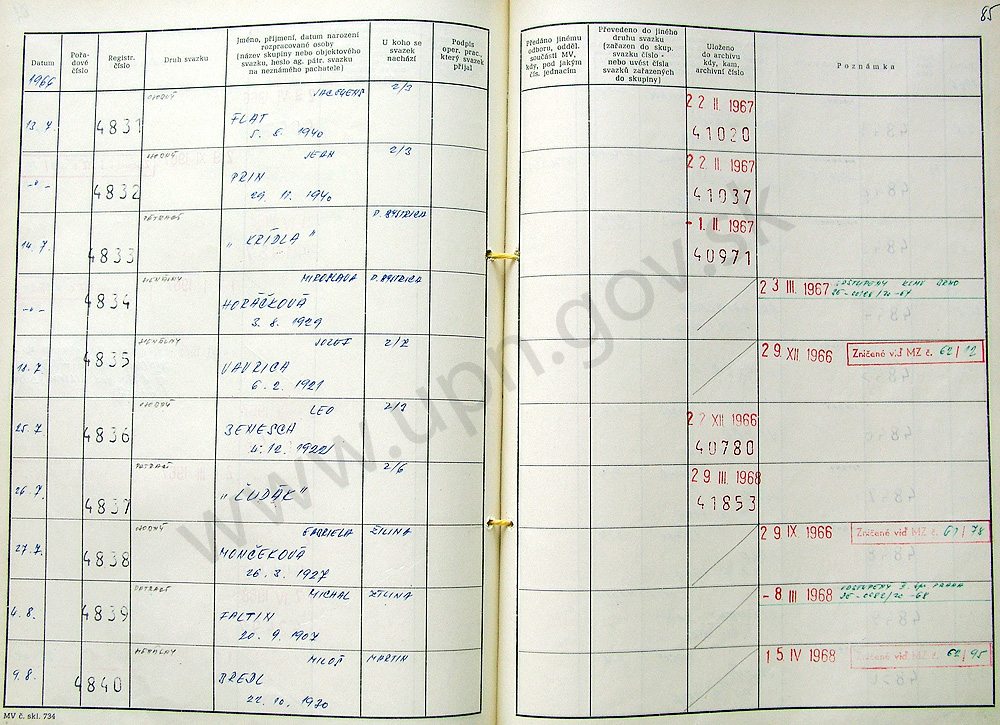 85
Datum
Pořa-
dové
číslo
Registr.
číslo
Druh svazku
Jméno, příjmení, datum narození
rozpracované osoby
(název skupiny nebo objektového
svazku, heslo ag. pátr. svazku
na neznámého pachatele)
U koho se
svazek
nachází
Podpis
oper. prac.,
který svazek
přijal
Předáno jinému
odboru, odděl.
součásti MV,
kdy, pod jakým
čís. jednacím
Převedeno do jiného
druhu svazku
(zařazen do skup.
svazku číslo -
nebo uvést čísla
svazků zařazených
do skupiny)
Uloženo
do archivu
kdy, kam,
archivní číslo
Poznámka
1966
13. 7.
4831
2/3
FLAT
5. 8. 1940
22 II. 1967
41020
-"-
4832
JEAN
2/3
PRIN
29. 11. 1940
22. II. 1967
41037
14. 7.
4833
B. BYSTRICA
"KRÍDLA"
- 1. II. 1967
40971
-"-
4834
MIROSLAVA
B. BYSTRICA
HORÁČKOVÁ
3. 8. 1929
23 III. 1967
18. 7.
4835
JOZEF
2/2
VAVRICA
6. 2. 1921
29. XII 1966
Zničené viď MZ č. 62/12
25. 7.
4836
LEO
BENESCH
4. 12. 1922
27 XII 1966
40780
26. 7.
4837
2/6
"ČUDÁK"
29. III. 1968
41853
27. 7.
4838
GABRIELA
ŽILINA
MONČEKOVÁ
26. 3. 1927
29 IX 1966
Zničené viď MZ č. 61/78
4. 8.
4839
MICHAL
ŽILINA
FALTIN
20. 9. 1907
- 8 III 1968
9. 8.
4840
MILOŠ
MARTIN
BREDL
22. 10. 1930
15 IV 1968
Zničené viď MZ č. 62/95
MV č. skl. 734
www.upn.gov.sk